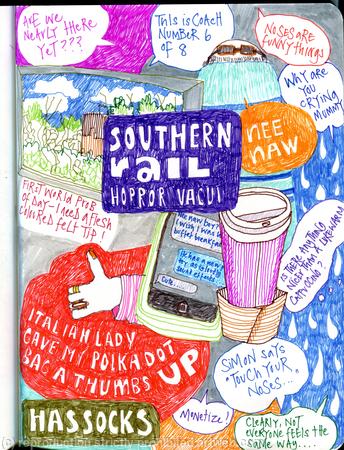 ARE WE
NEARLY THERE
YET???
THIS IS COACH
NUMBER 6
OF 8
NOSES ARE
FUNNY THINGS
WHY ARE
YOU
CRYING
MUMMY
SOUTHERN
rail
HORROR VACUI
NEE
NAW
FIRST WORLD PROB
OF DAY - I NEED A FLESH
COLORED FELT TIP!
I wish I was
buffet breakfast
Cute
IS THERE ANYTHING
NICER THAN A LUKEWARM
ITALIAN LADY
GAVE MY POLKA DOT
BAG A THUMBS UP
SIMON SAYS
"TOUCH YOUR
NOSES...."
HASSOCKS
Monetize!
CLEARLY, NOT
EVERYONE FEELS THE
SAME WAY....